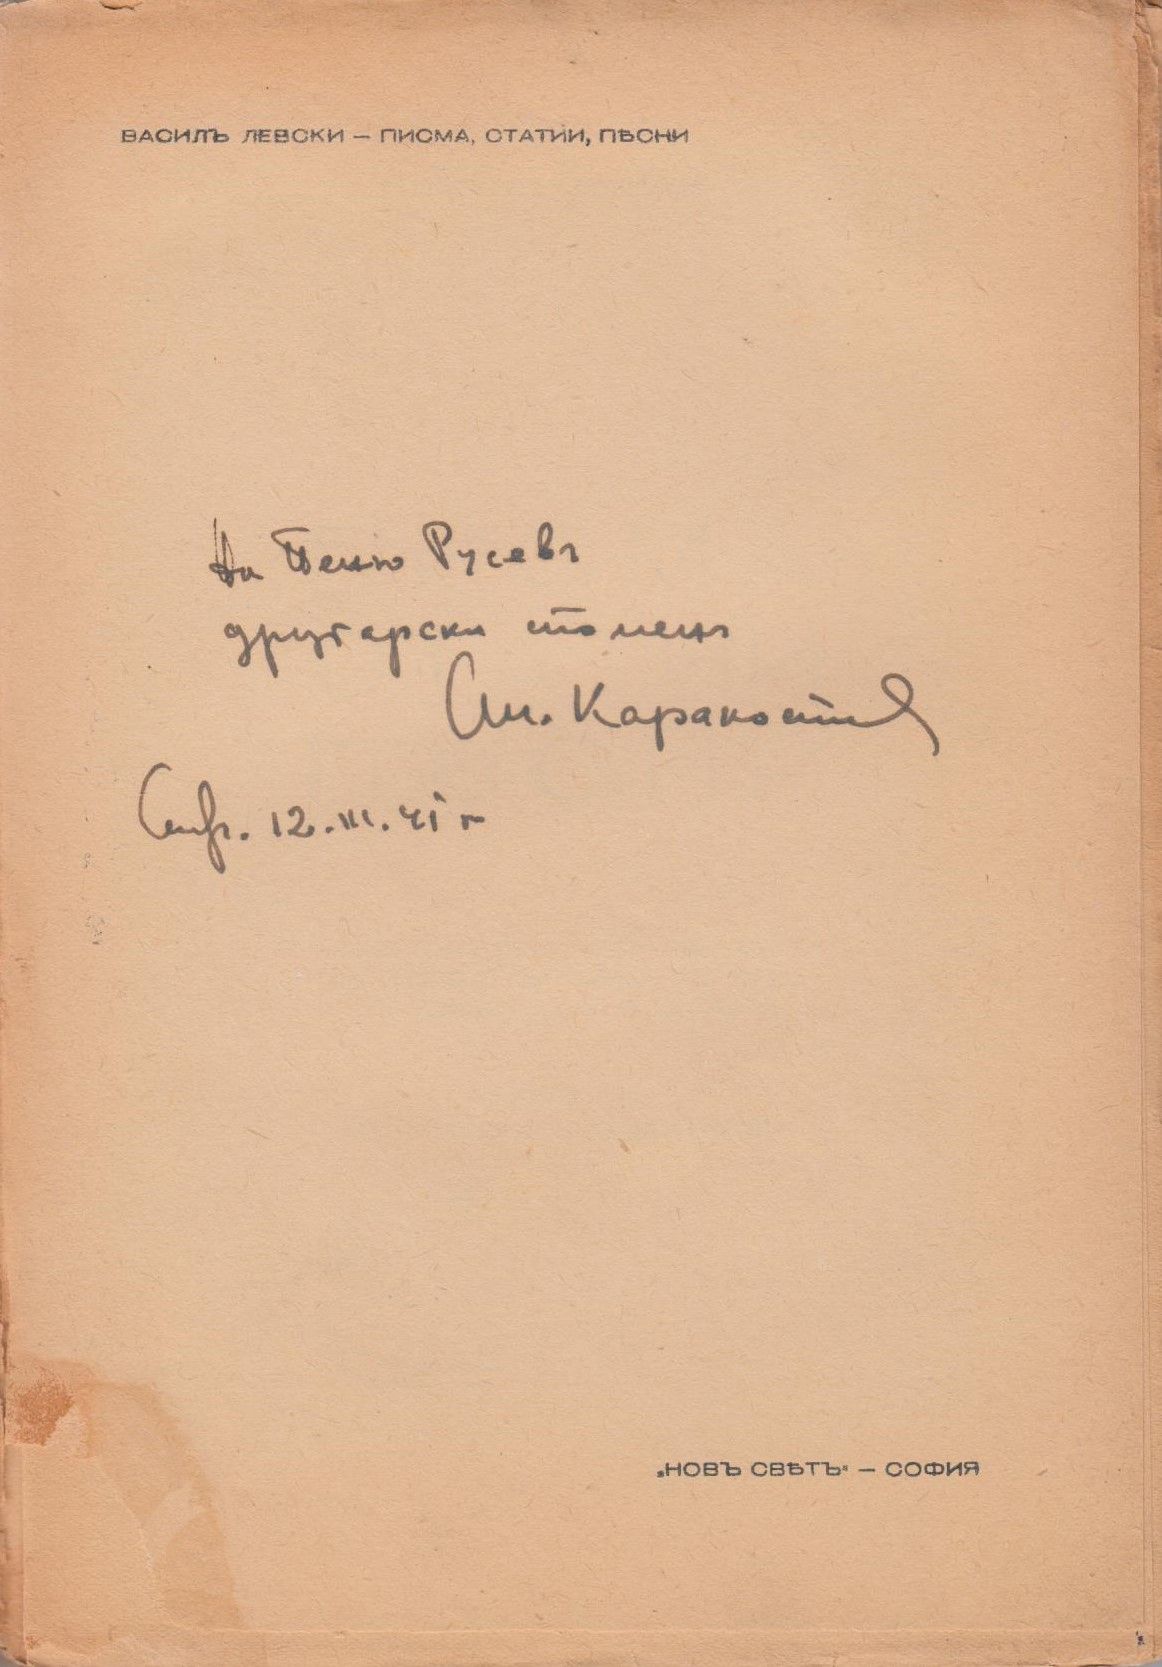 ВАСИЛЪ ЛЕВСКИ — ПИСМА, СТАТИИ, ПѢСНИ
На Пеню Русевъ
другарски споменъ
Ст. Каракостов
12.III.41 г
„НОВЪ СВѢТЪ“ — СОФИЯ